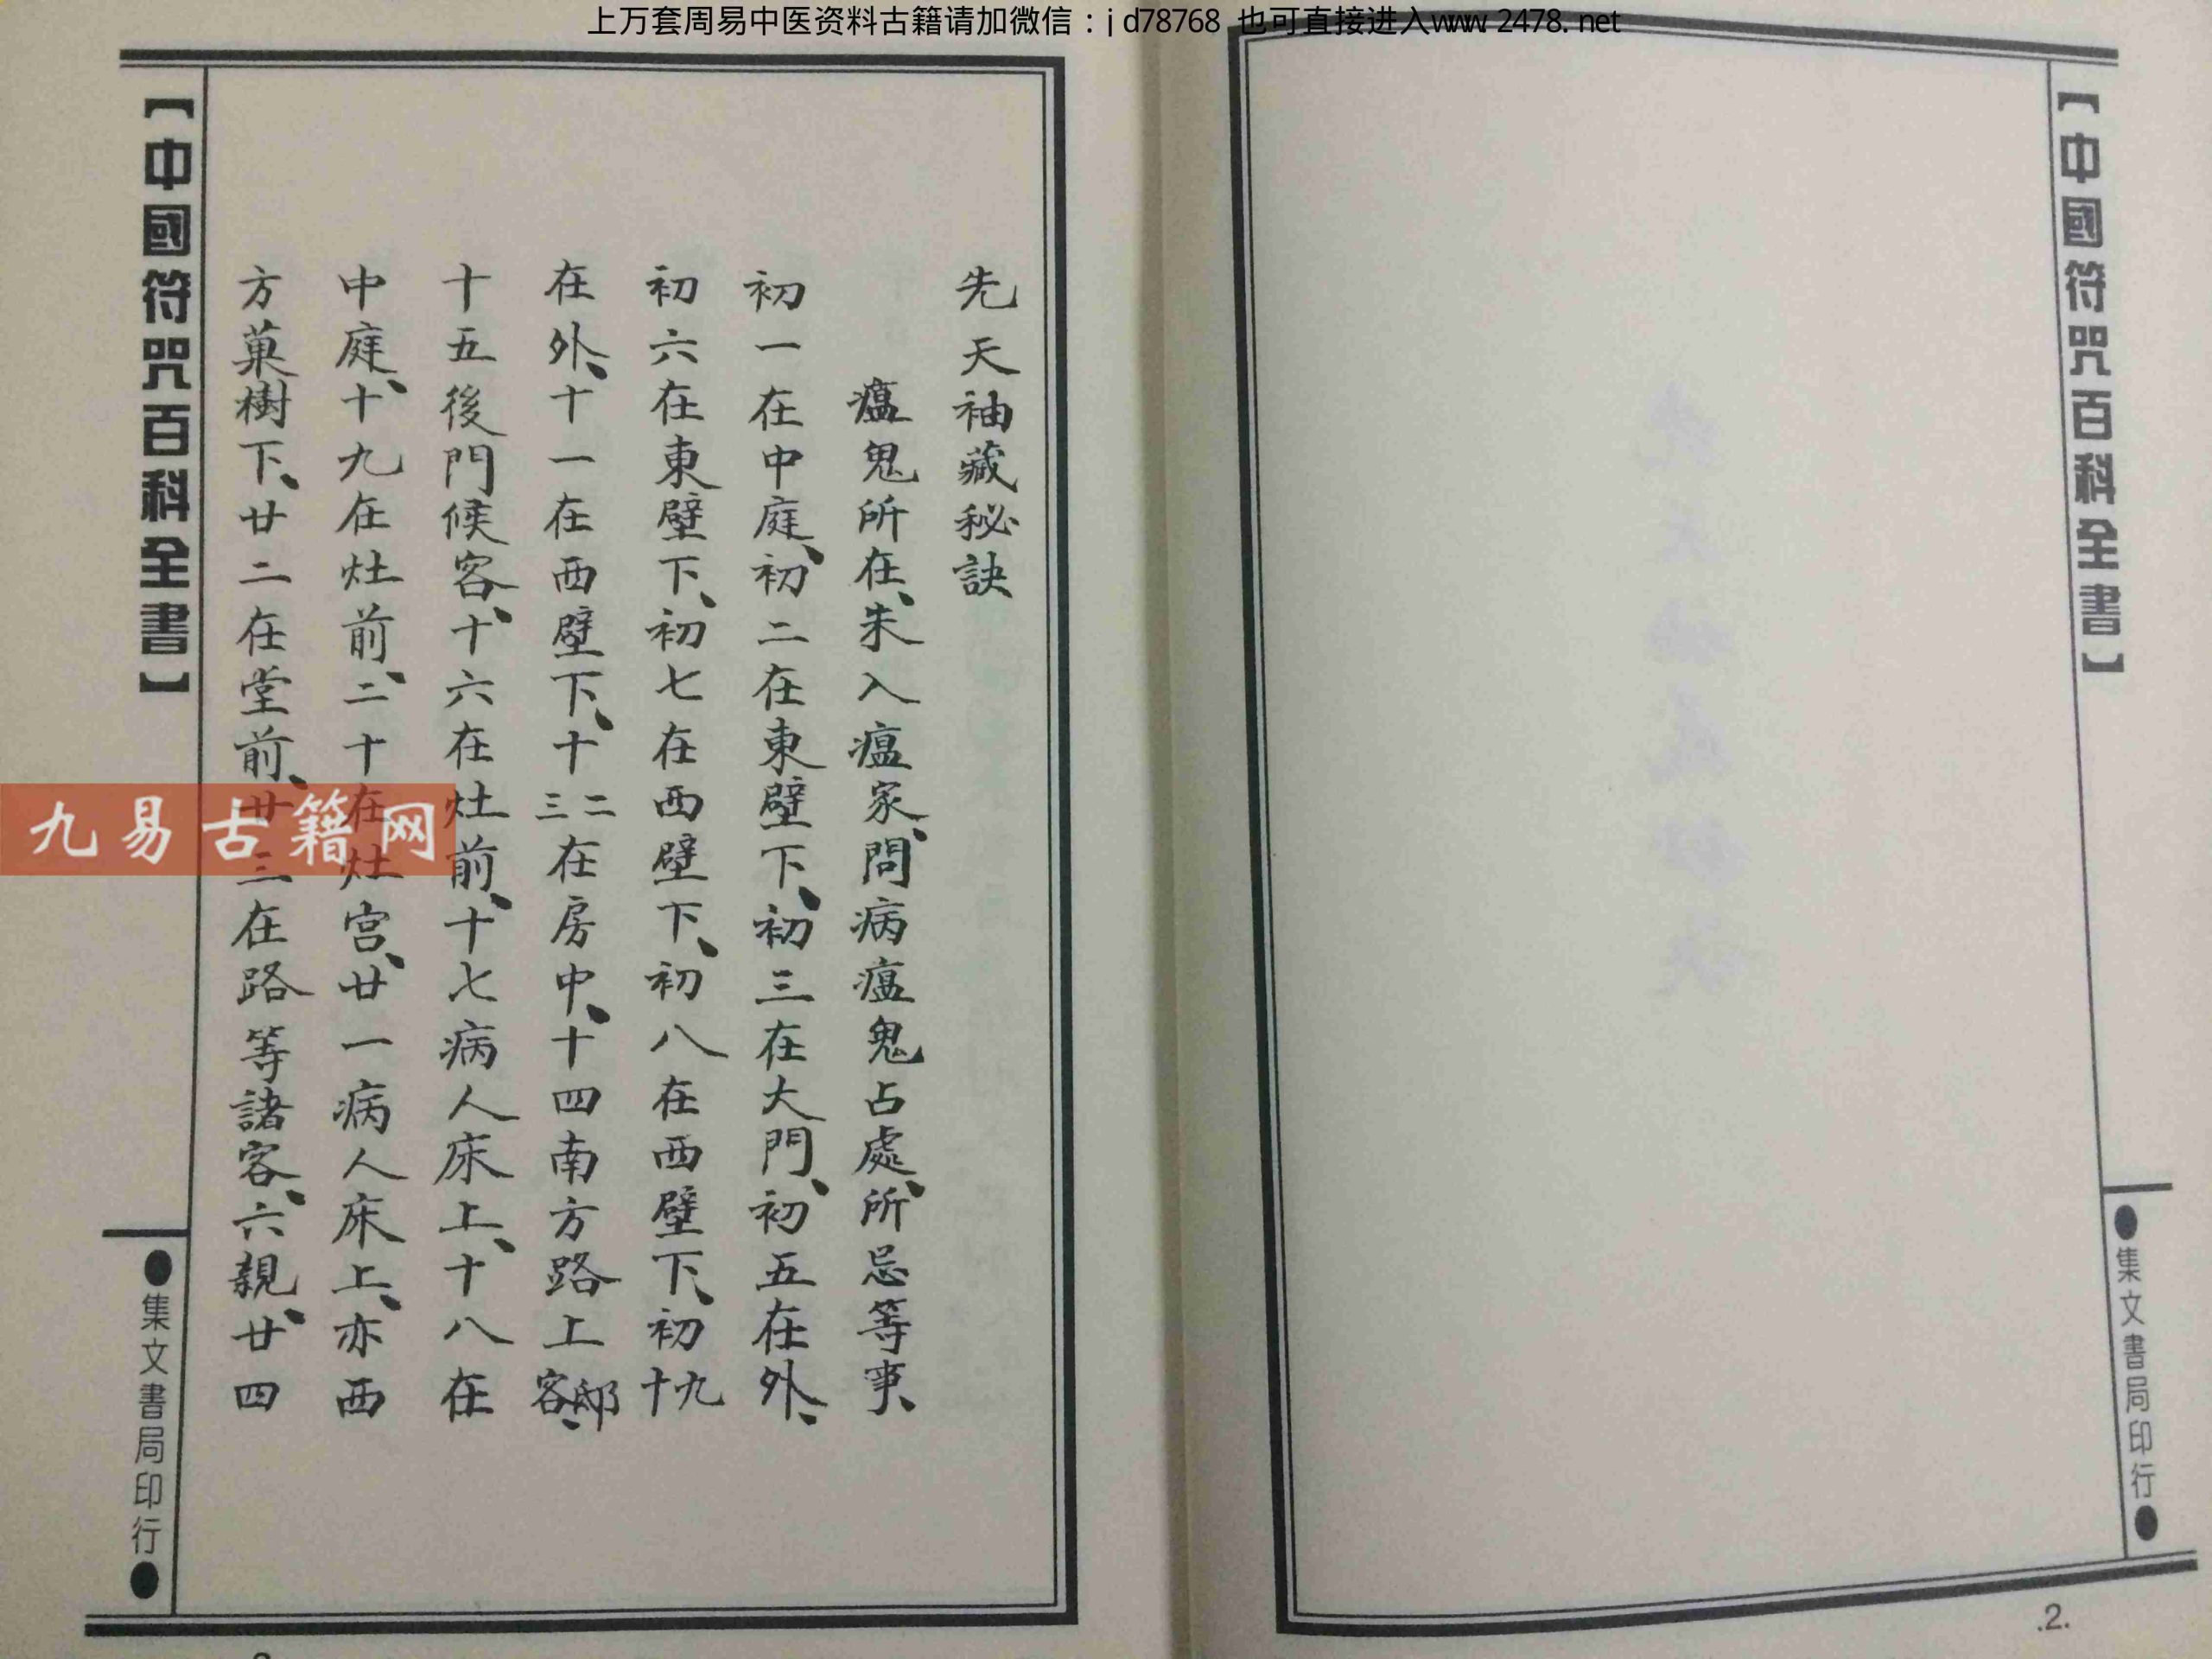 上万套周易中医资料古籍请加微信：jd78768 也可直接进入www.2478.net
【中國符咒百科全書】
●集文書局印行●
.2.
先天袖藏秘訣
瘟鬼所在、朱入瘟家、問病瘟鬼占處、所忌等事、
初一在中庭、初二在東壁下、初三在大門、初五在外、
初六在東壁下、初七在西壁下、初八在西壁下、初九十
在外、十一在西壁下、十二三在房中、十四南方路上邸客、
十五後門候客、十六在灶前、十七病人床上、十八在
中庭、十九在灶前、二十在灶宮、廿一病人床上、亦西
方菓樹下、廿二在堂前、廿三在路等諸客、六親、廿四
【中國符咒百科全書】
●集文書局印行●
九易古籍网